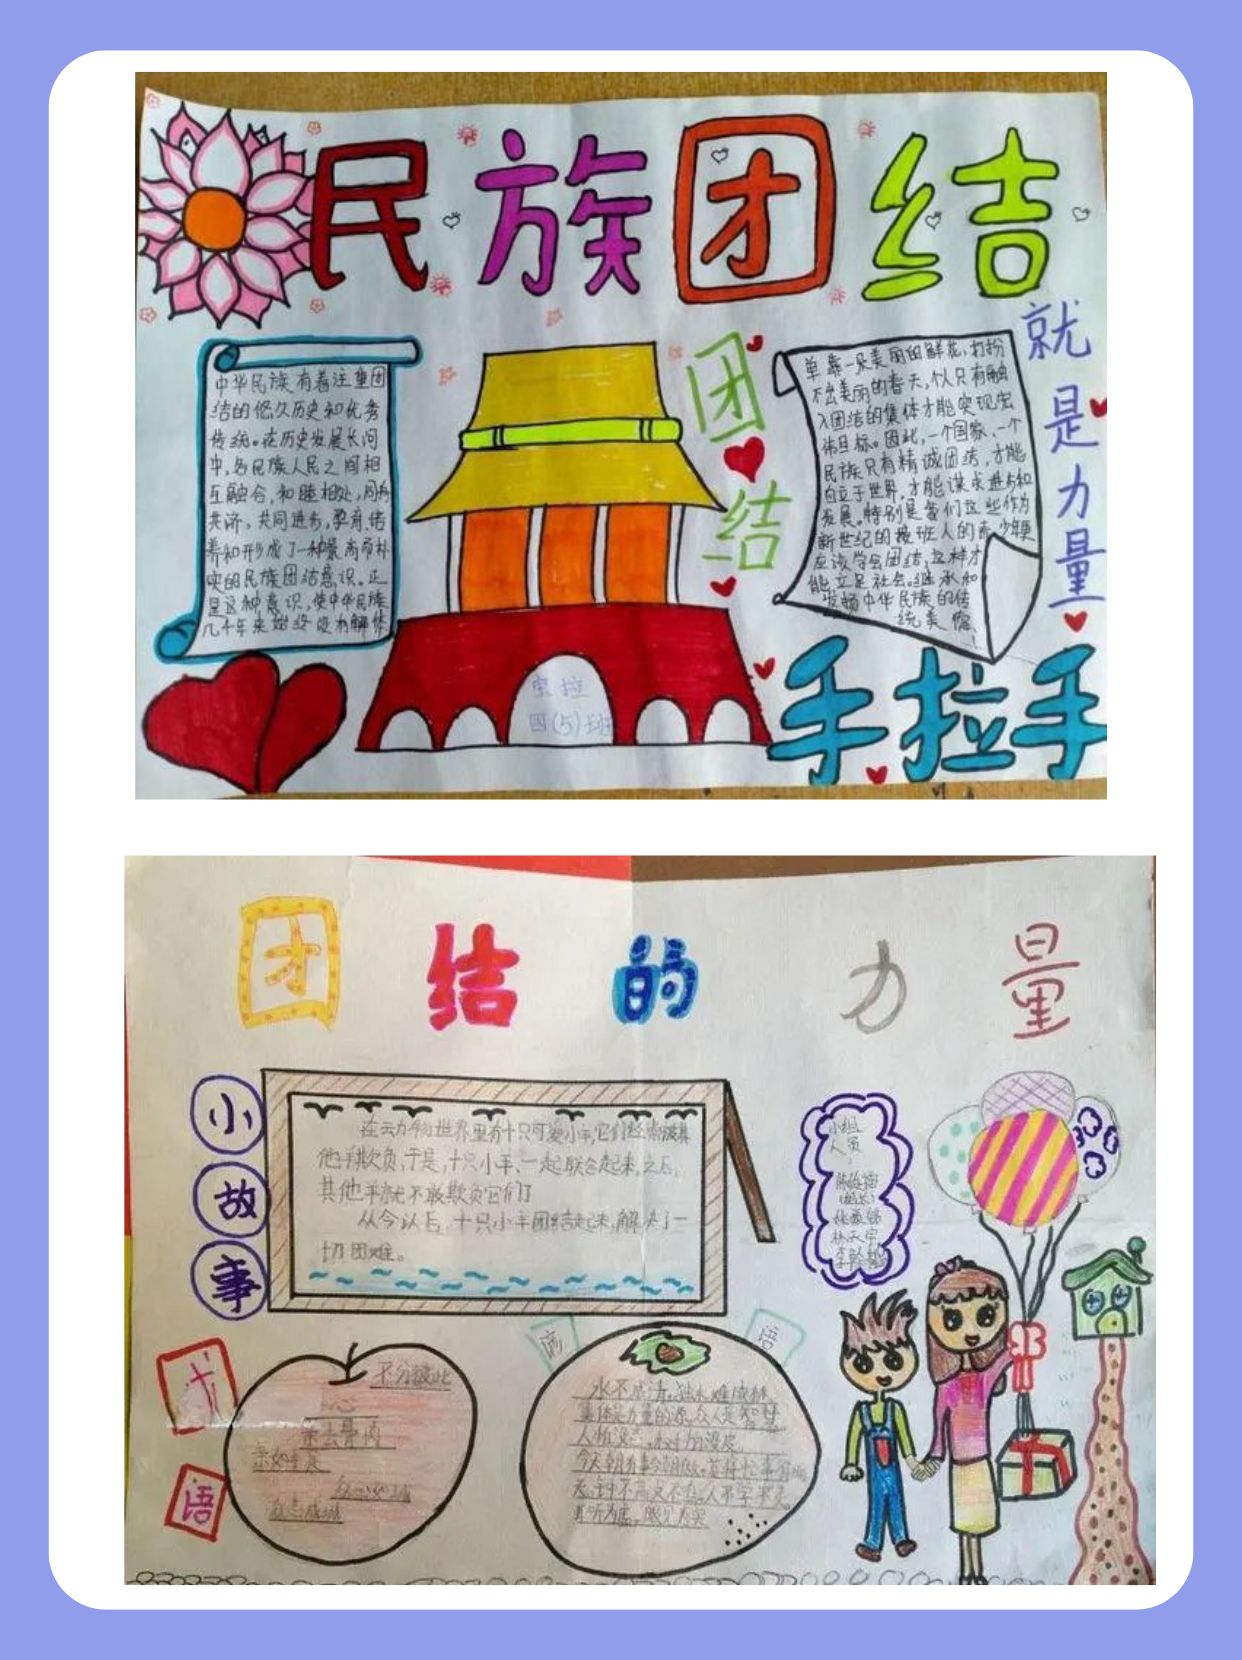 民族团结
中华民族有着注重团
结的悠久历史和优秀
传统。在历史发展长河
中,各民族人民之间相
互融合,和睦相处,同舟
共济,共同进步,孕育、培
养和形成了一种崇高质朴
实的民族团结意识。正
是这种意识,使中华民族
几千年来始终没有解体
宝拉
四(5)班
团结
单靠一朵美丽的鲜花,打扮
不出美丽的春天,个人只有融
入团结的集体才能实现宏
伟目标。因此,一个国家、一个
民族只有精诚团结,才能
自立于世界,才能谋求进步和
发展。特别是我们这些作为
新世纪的接班人的青少年更
应该学会团结,这样才
能立足社会。继承和
发扬中华民族的传
统美德!
就是力量
手拉手
团结的力量
小故事
在云力物世界里有十只可爱小羊,它们经常被其
他羊欺负,于是,十只小羊,一起联合起来,之后,
其他羊就不敢欺负它们了
从今以后,十只小羊团结起来,解决了一
切困难。
小组
人员
(组长)
成语
不分彼此
亲如手足
众志成城
谚语
水不成清,独木难成林
集体是力量的源,众人是智慧